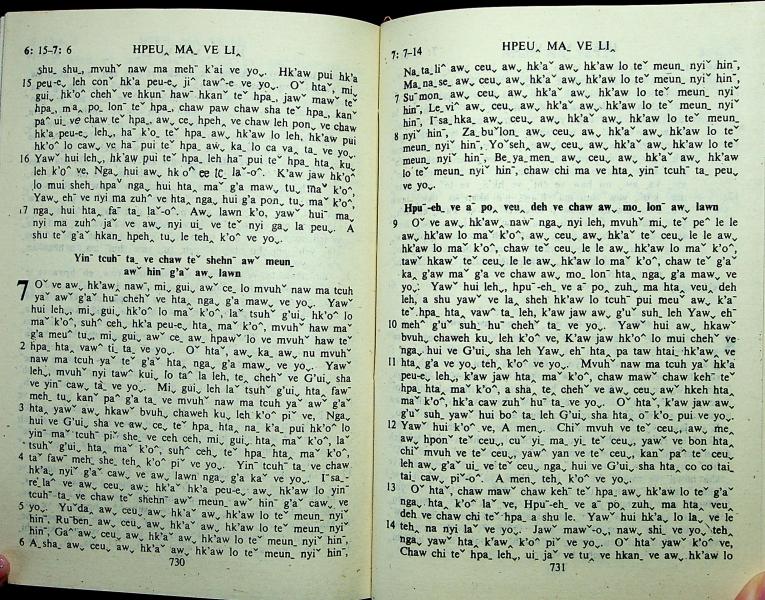 6: 15–7: 6
HPEU‸ MA_ VE LI‸
shu_ shu_, mvuhˇ naw ma mehˉ k'ai ve yo⌄. Hk'aw pui hk'a
15 peu-e⌄ leh conˇ hk'a peu-e⌄ ji^ tawˆ-e ve yo⌄. Oˇ htaˇ, mi⌄
gui⌄ hk'oˆ chehˇ ve hkunˉ hawˇ hkanˉ teˇ hpa⌄, jawˇ mawˇ teˇ
hpa⌄, ma‸ po_ lonˉ teˇ hpa⌄, chaw paw chaw sha teˇ hpa⌄, kanˇ
paˆ ui⌄ ve chaw teˇ hpa⌄, aw⌄ ce⌄ hpeh⌄ ve chaw leh pon⌄ ve chaw
hk'a peu-e⌄ leh⌄, haˉ k'o_ teˇ hpa_ aw⌄ hk'aw lo leh, hk'aw pui
hk'oˇ lo caw⌄ ve haˉ pui teˇ hpa_ aw⌄ ka_ lo ca va_ ta_ ve yo⌄.
16 Yawˇ hui leh⌄, hk'aw pui teˇ hpa_ leh haˉ pui teˇ hpa_ hta‸ ku_
leh k'oˆ ve, Nga_ hui aw⌄ hk'oˆ ce tc_ laˇ-oˆ. K'aw jaw hk'oˇ
lo mui sheh_ hpaˇ nga_ hui hta‸ maˇ g'a maw⌄ tu_ maˇ k'oˆ,
Yaw⌄ ehˉ ve nyi ma zuhˆ ve hta‸ nga_ hui g'a pon⌄ tu_ maˇ k'oˆ,
17 nga_ hui hta‸ faˉ ta_ laˇ-oˆ. Aw⌄ lawnˇ k'o, yawˇ huiˉ ma⌄
nyi ma zuhˆ jaˇ ve aw⌄ nyi ui⌄ ve teˇ nyi ga⌄ la peu⌄. A
shu teˇ g'aˇ hkan_ hpeh‸ tu_ le teh‸ k'oˆ ve yo⌄.
Yinˉ tcuhˉ ta_ ve chaw teˇ shehnˉ awˇ meun_
awˇ hinˉ g'aˇ aw⌄ lawn
7 Oˇ ve aw⌄ hk'aw‸ nawˉ, mi⌄ gui⌄ awˇ ce_ lo mvuhˇ naw ma tcuh
yaˇ awˇ g'aˇ huˉ chehˇ ve hta‸ nga_ g'a maw⌄ ve yo⌄. Yawˇ
hui leh⌄, mi⌄ gui⌄ hk'oˆ lo maˇ k'oˆ, laˇ tsuhˇ g'ui⌄ hk'oˆ lo
maˇ k'oˆ, suhˆ ceh_ hk'a peu-e⌄ hta‸ maˇ k'oˆ, mvuhˇ haw maˇ
g'a meuˆ tu_, mi⌄ gui⌄ awˇ ce_ aw_ hpawˇ lo ve mvuhˇ haw teˇ
2 hpa_ hta‸ vawˆ ti_ ta_ ve yo⌄. Oˇ htaˇ, aw⌄ ka_ aw⌄ nu mvuhˇ
naw ma tcuh yaˇ teˇ g'aˇ hta‸ nga_ g'a maw⌄ ve yo⌄. Yawˇ
leh⌄, mvuhˇ nyi tawˆ kui_ lo taˆ la leh, te_ chehˇ ve G'ui⌄ sha
ve yinˉ caw⌄ ta_ ve yo⌄. Mi⌄ gui⌄ leh laˇ tsuhˇ g'ui⌄ hta‸ fawˇ
meh_ tu_ kanˇ paˆ g'a ta_ ve mvuhˇ naw ma tcuh yaˇ awˇ g'aˇ
3 hta‸ yawˇ aw⌄ hkawˇ bvuh_ chaweh ku_ leh k'oˆ piˇ ve, Nga_
hui ve G'ui⌄ sha ve aw⌄ ce_ teˇ hpa_ hta‸ na_ k'a_ pui hk'oˇ lo
yinˉ maˇ tcuhˉ piˇ she⌄ ve ceh ceh, mi⌄ gui⌄ hta‸ maˇ k'oˆ, laˇ
tsuhˇ g'ui⌄ hta‸ maˇ k'oˆ, suhˆ ceh_ teˇ hpa_ hta‸ maˇ k'oˆ,
4 taˇ fawˇ meh_ she⌄ teh‸ k'oˆ piˇ ve yo⌄. Yinˉ tcuhˉ ta_ ve chaw
hk'a⌄ nyiˇ g'aˇ caw⌄ ve aw⌄ lawn nga_ g'a kaˇ ve yo⌄. Iˉsa_-
re_ laˆ ve aw⌄ ceu_ aw⌄ hk'aˇ hk'a peu-e⌄ aw⌄ hk'aw lo yinˉ
tcuhˉ ta_ ve chaw teˇ shehnˉ awˇ meun_ awˇ hinˉ g'aˇ caw⌄ ve
5 yo⌄. Yuˉda‸ aw⌄ ceu⌄ aw⌄ hk'aˇ aw⌄ hk'aw lo teˇ meun_ nyiˇ
hinˉ, Ruˉben_ aw⌄ ceu⌄ aw⌄ hk'aˇ aw⌄ hk'aw lo teˇ meun_ nyiˇ
hinˉ, Gaˆ aw⌄ ceu⌄ aw⌄ hk'aˇ aw⌄ hk'aw lo teˇ meun_ nyiˇ hinˉ,
6 A_sha_ aw⌄ ceu⌄ aw⌄ hk'aˇ aw⌄ hk'aw lo teˇ meun_ nyiˇ hinˉ,
730
7: 7–14
HPEU‸ MA_ VE LI‸
Na_ta_liˆ aw⌄ ceu⌄ aw⌄ hk'aˇ aw⌄ hk'aw lo teˇ meun_ nyiˇ hinˉ,
Ma_na_se_ aw⌄ ceu⌄ aw⌄ hk'aˇ aw⌄ hk'aw lo teˇ meun_ nyiˇ hinˉ,
7 Suˉmon_ aw⌄ ceu⌄ aw⌄ hk'aˇ aw⌄ hk'aw lo teˇ meun_ nyiˇ
hinˉ, Le_viˆ aw⌄ ceu⌄ aw⌄ hk'aˇ aw⌄ hk'aw lo teˇ meun_ nyiˇ
hinˉ, Iˉsa_hka_ aw⌄ ceu⌄ aw⌄ hk'aˇ aw⌄ hk'aw lo teˇ meun_
8 nyiˇ hinˉ, Za_buˇlon_ aw⌄ ceu⌄ aw⌄ hk'aˇ aw⌄ hk'aw lo teˇ
meun_ nyiˇ hinˉ, Yoˇseh‸ aw⌄ ceu⌄ aw⌄ hk'aˇ aw⌄ hk'aw lo teˇ
meun_ nyiˇ hinˉ, Be_ya_men_ aw⌄ ceu⌄ aw⌄ hk'aˇ aw⌄ hk'aw
lo teˇ meun_ nyiˇ hinˉ, chaw chi ma ve hta‸ yinˉ tcuhˉ ta_ peu_
ve yo⌄.
Hpuˉ-eh_ ve aˉ po_ veu⌄ deh ve chaw aw⌄ mo_ lonˉ aw⌄ lawn
9 Oˇ ve aw⌄ hk'aw‸ nawˉ nga_ nyi leh, mvuhˇ mi_ teˇ peˆ le le
aw⌄ hk'aw lo maˇ k'oˆ, aw⌄ ceu⌄ aw⌄ hk'aˇ teˇ ceu⌄ le le aw⌄
hk'aw lo maˇ k'oˆ, chaw teˇ ceu⌄ le le aw⌄ hk'aw lo maˇ k'oˆ,
tawˇ hkawˇ teˇ ceu⌄ le le aw⌄ hk'aw lo maˇ k'oˆ, chaw teˇ g'aˇ
ka⌄ g'aw maˇ g'a ve chaw aw⌄ mo_ lonˉ hta‸ nga_ g'a maw⌄ ve
yo⌄. Yawˇ hui leh⌄, hpuˉ-eh_ ve aˉ po_ zuh_ ma hta‸ veu⌄ deh
leh, a shu yawˇ ve la⌄ sheh hk'aw lo tcuhˉ pui meuˇ aw⌄ k'aˉ
teˇ hpa_ hta‸ vawˆ ta_ leh, k'aw jaw aw⌄ g'uˇ suh_ leh Yaw⌄ ehˉ
10 mehˆ g'uˇ suh_ huˉ chehˇ ta_ ve yo⌄. Yawˇ hui aw⌄ hkawˇ
bvuh_ chaweh ku_ leh k'oˆ ve, K'aw jaw hk'oˇ lo mui chehˇ ve
nga_ hui ve G'ui⌄ sha leh Yaw⌄ ehˉ hta‸ pa taw htai_ hk'aw‸ ve
11 hta‸ g'a ve yo⌄ teh‸ k'oˆ ve yo⌄. Mvuhˇ naw ma tcuh yaˇ hk'a
peu-e⌄ leh⌄, k'aw jaw hta‸ maˇ k'oˆ, chaw mawˇ chaw kehˉ teˇ
hpa_ hta‸ maˇ k'oˆ, a sha_ te_ chehˇ ve aw⌄ ceu⌄ awˇ hkeh hta‸
maˇ k'oˆ, hk'a caw zuhˇ huˉ ta_ ve yo⌄. Oˇ htaˇ, k'aw jaw aw⌄
g'uˇ suh_ yawˇ hui boˆ ta_ leh G'ui⌄ sha hta‸ oˇ k'o_ pui ve yo⌄.
12 Yawˇ hui k'oˆ ve, A men⌄. Chiˇ mvuh ve teˇ ceu⌄, aw⌄ me‸
aw⌄ hponˇ teˇ ceu⌄, cuˇ yi_ ma_ yi_ teˇ ceu⌄, yawˇ ve bon hta‸
chiˇ mvuh ve teˇ ceu⌄, yawˆ yan ve teˇ ceu⌄, kanˇ paˆ teˇ ceu⌄
leh aw⌄ g'aˇ ui⌄ ve teˇ ceu⌄ nga_ hui ve G'ui⌄ sha hta‸ co co tai_
tai_ caw⌄ piˇ-oˆ. A men⌄ teh‸ k'oˆ ve yo⌄.
13 Oˇ htaˇ, chaw mawˇ chaw kehˉ teˇ hpa_ aw⌄ hk'aw lo teˇ g'aˇ
nga_ hta‸ k'oˆ la ve, Hpuˉ-eh_ ve aˉ po_ zuh_ ma hta‸ veu⌄
deh ve chaw chi teˇ hpa_ a shu le. Yawˇ hui hk'a⌄ lo la_ ve le
14 teh‸ na nyi la ve yo⌄. Jawˇ mawˇ-o⌄, naw⌄ shiˉ ve yo⌄ teh‸
nga_ yawˇ hta‸ k'aw‸ k'oˆ piˇ ve yo⌄. Oˇ htaˇ yawˇ k'oˆ ve,
Chaw chi teˇ hpa_ leh⌄, ui_ jaˇ ve tu‸ ve hkan_ ve aw⌄ hk'aw lo
731